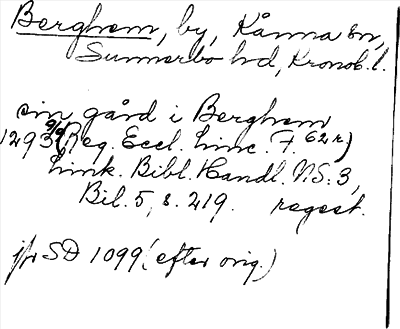 Berghem, by, Kånna sn,
Sunnerbo hd, Kronob. l.
ein gård i Berghem
1293 9/6 (Reg. Eccl. Linc. F. 62 r)
Link. Bibl. Handl. NS: 3,
Bil. 5, s. 219. regest.
jfr SD 1099 (efter orig.)